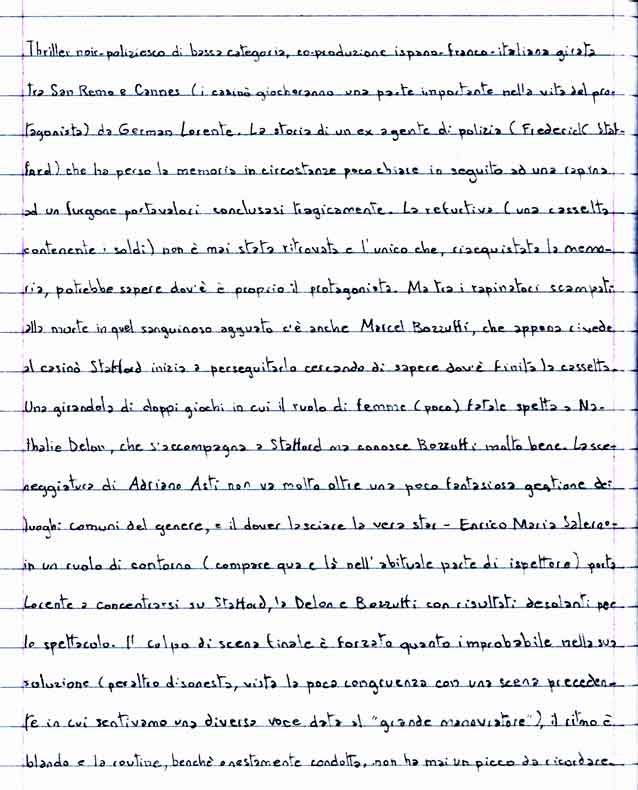 Thriller noir-poliziesco di bassa categoria, co-produzione ispano-franco-italiana girata
tra San Remo e Cannes (i casinò giocheranno una parte importante nella vita del pro-
tagonista) da German Lorente. La storia di un ex agente di polizia (Frederick Staf-
ford) che ha perso la memoria in circostanze poco chiare in seguito ad una rapina
ad un furgone portavalori conclusasi tragicamente. La refurtiva (una cassetta
contenente i soldi) non è mai stata ritrovata e l'unico che, riacquistata la memo-
ria, potrebbe sapere dov'è è proprio il protagonista. Ma tra i rapinatori scampati
alla morte in quel sanguinoso agguato c'è anche Marcel Bozzuffi, che appena rivede
al casinò Stafford inizia a perseguitarlo cercando di sapere dov'è finita la cassetta.
Una girandola di doppi giochi in cui il ruolo di femme (poco) fatale spetta a Na-
thalie Delon, che s'accompagna a Stafford ma conosce Bozzuffi molto bene. La sce-
neggiatura di Adriano Asti non va molto oltre una poco fantasiosa gestione dei
luoghi comuni del genere, e il dover lasciare la vera star - Enrico Maria Salerno -
in un ruolo di contorno (compare qua e là nell'abituale parte di ispettore) porta
Lorente a concentrarsi su Stafford, la Delon e Bozzuffi con risultati desolanti per
lo spettacolo. Il colpo di scena finale è forzato quanto improbabile nella sua
soluzione (peraltro disonesta, vista la poca congruenza con una scena preceden-
te in cui sentivamo una diversa voce data al "grande manovratore"), il ritmo è
blando e la routine, benchè onestamente condotta, non ha mai un picco da ricordare.